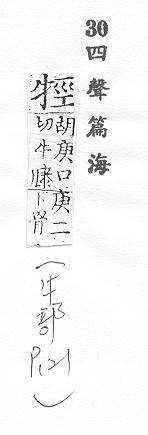 30 四聲篇海
牼
胡庚口庚二
切牛膝下骨
(牛部 P.121)